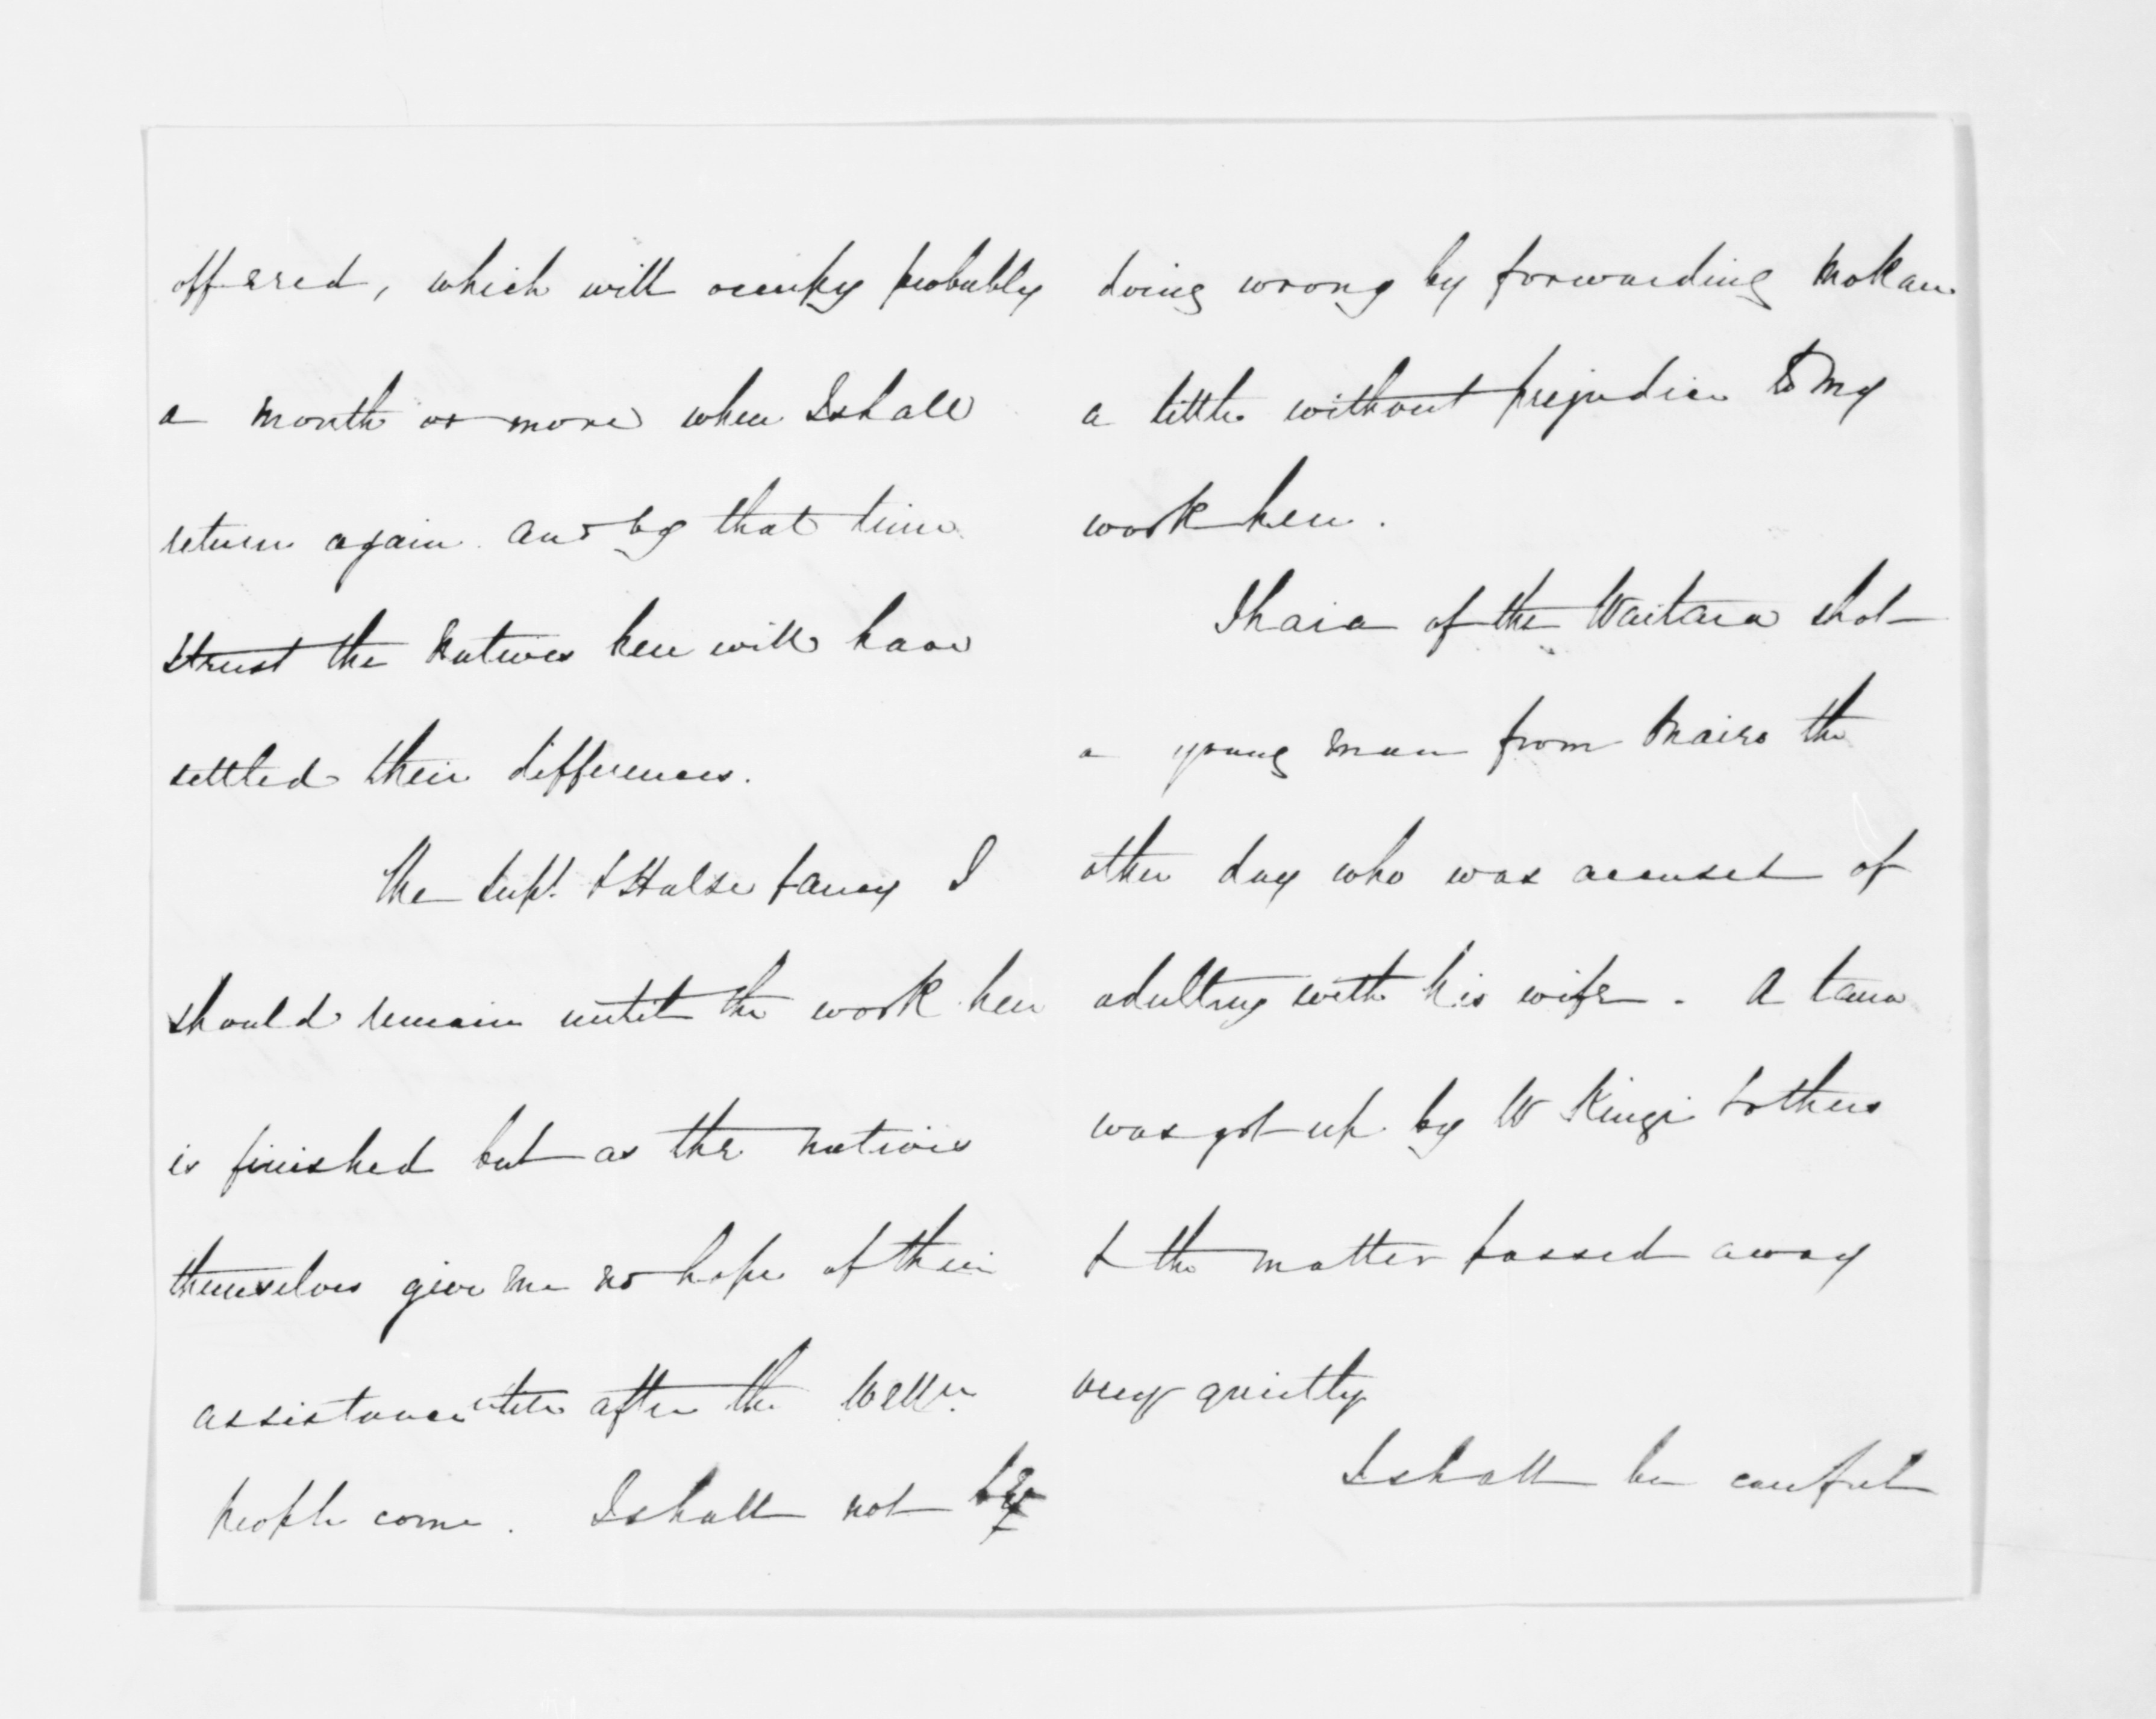 offered, which will occupy probably
a month or more when I shall
return again and by that time
I trust the Natives here will have
settled their differences.
The Supt. & Halse fancy I
should remain until the work here
is finished but as the natives
themselves give me no hope of their
assistance until after the Welln.
people come. I shall not be
doing wrong by forwarding Mokau
a little without prejudice to my
work here.
Ihaia of the Waitara shot
a young man from the
other day who was accused of
adultery with his wife. A taua
was got up by W Kingi & others
& the matter passed away
very quietly
I shall be careful